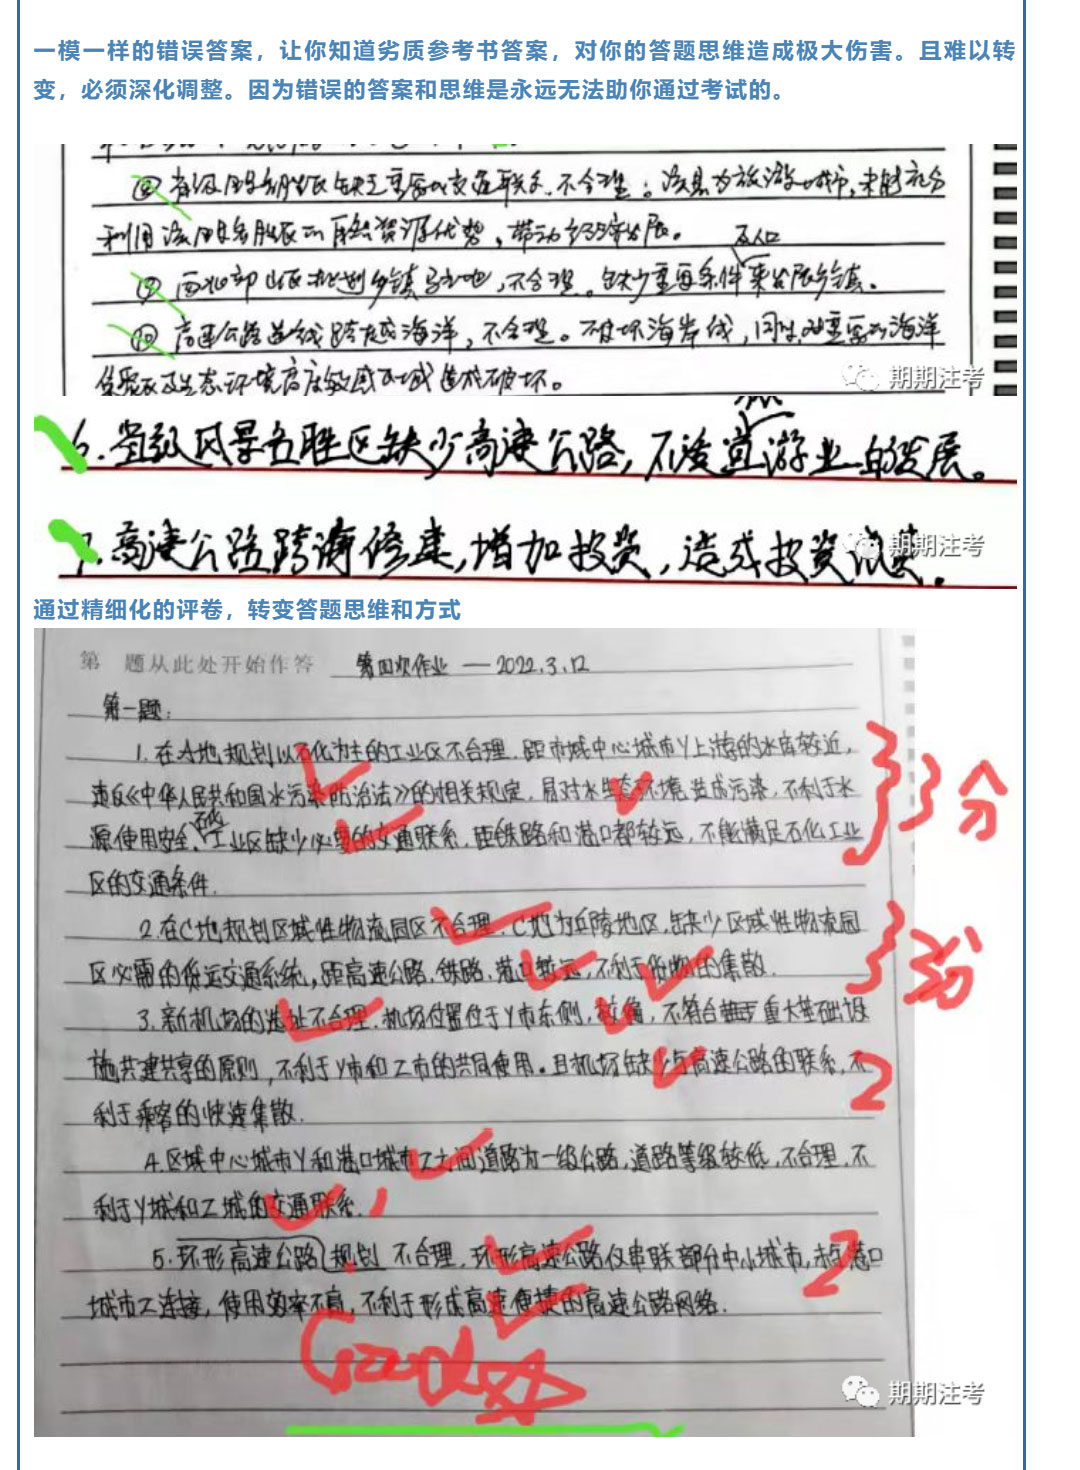 一模一样的错误答案，让你知道劣质参考书答案，对你的答题思维造成极大伤害。且难以转
变，必须深化调整。因为错误的答案和思维是永远无法助你通过考试的。
⑧省级风景名胜区缺乏重要的交通联系，不合理；该县为旅游城市，未能充分
利用该风景名胜区的自然资源优势，带动经济发展。
及人口
⑨西北部山区规划乡镇用地，不合理。缺少重要条件来发展乡镇。
⑩高速公路选线跨越海洋，不合理。破坏海岸线，同时对重要的海洋
保护区及生态环境高度敏感区域造成破坏。
期期注考
6.省级风景名胜区缺少高速公路，不适宜旅游业的发展。
7.高速公路跨海修建，增加投资，造成投资浪费。
期期注考
通过精细化的评卷，转变答题思维和方式
第 题从此处开始作答 第四次作业 — 2022.3.12
第一题：
1.在A地规划以石化为主的工业区不合理.距市域中心城市Y上游的水库较近，
违反《中华人民共和国水污染防治法》的相关规定，易对水生态环境造成污染，不利于水
源使用安全、石化工业区缺少必要的交通联系，距铁路和港口都较远，不能满足石化工业
区的交通条件.
3分
2.在C地规划区域性物流园区不合理.C地为丘陵地区，缺少区域性物流园
区必需的货运交通系统，距高速公路.铁路.港口较远，不利于货物的集散.
3分
3.新机场的选址不合理.机场位置位于Y市东侧，较偏，不符合重大基础设
施共建共享的原则，不利于Y市和Z市的共同使用。且机场缺少与高速公路的联系，不
利于乘客的快速集散.
2
4.区域中心城市Y和港口城市Z之间道路为一级公路，道路等级较低，不合理，不
利于Y城和Z城的交通联系.
5.环形高速公路规划不合理.环形高速公路仅串联部分中小城市，未与港口
城市Z连接，使用效率不高，不利于形成高速便捷的高速公路网络.
2
Good
期期注考